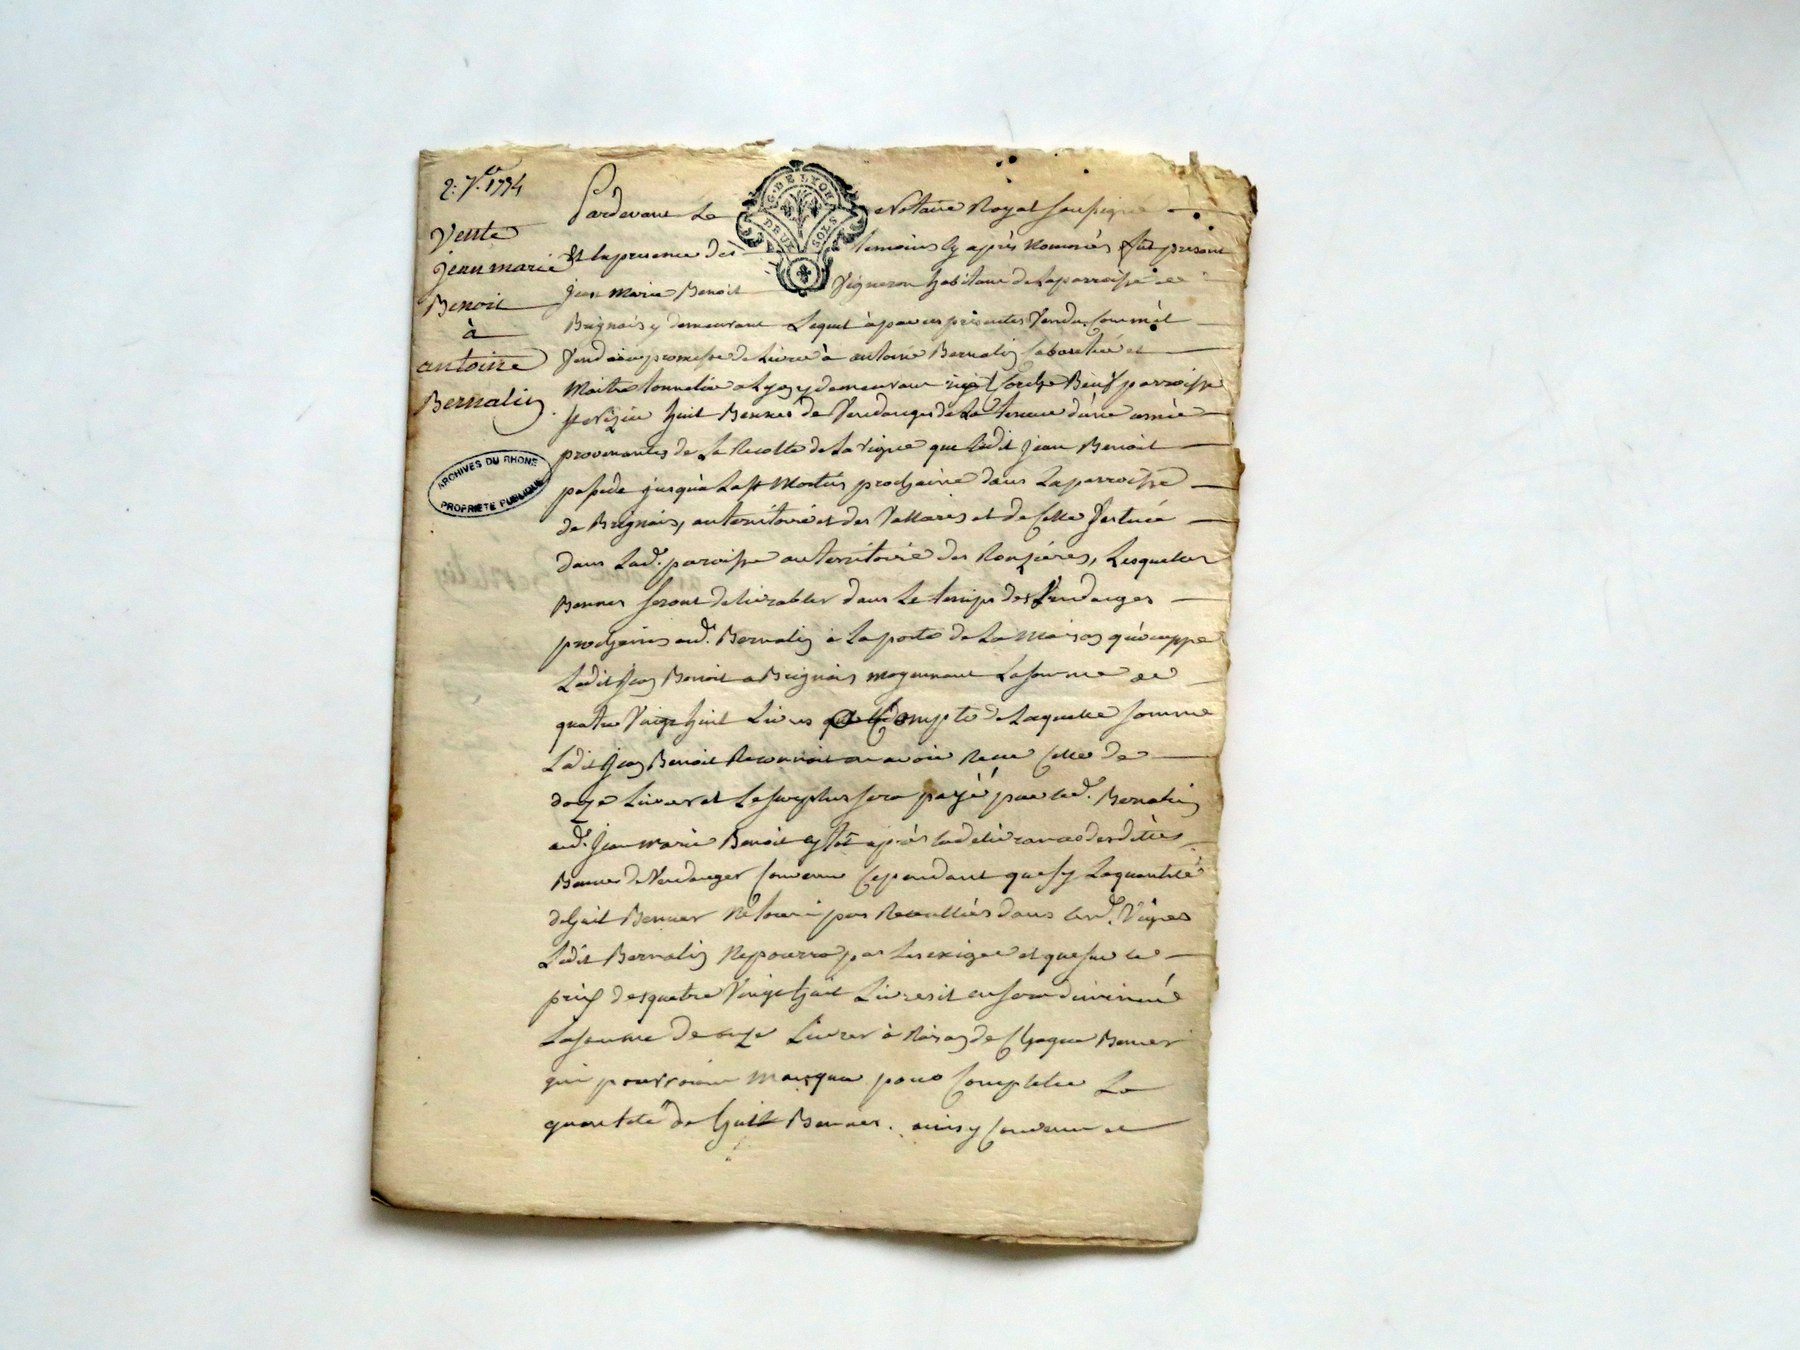 2: 7.bre 1774
Vente
jean marie
Benoit
à
antoine
Bernalin
ARCHIVES DU RHONE
PROPRIÉTÉ PUBLIQUE
G. DE LYON
DEUX SOLS
Pardevant Le Notaire Royal soussigné
Et en presence des temoins cy après Nommés fut present
Jean Marie Benoit Vigneron habitant de la parroisse de
Brignais y demeurant Lequel à par ces presentes Vendu Comme il
Vend avec promesse de Livrer à antoine Bernalin Cabaretier et
Maitre tonnelier a Lyon y demeurant parroisse
St Nizier huit Bennes de Vendanges de La teneur d'une asnée
provenantes de La Recolte de La vigne que Ledit Jean Benoit
possede jusqu'à La St Martin prochaine dans La parroisse
de Brignais, au territoire des et de Celle scituée
dans Lad. paroisse au territoire des Ronzieres, Lesquelles
Bennes seront delivrables dans Le temps des Vendanges
prochaines aud. Bernalin à La porte de La Maison qu'occuppe
Ledit Jean Benoit a Brignais moyennant La somme de
quatre Vingt huit Livres a Compte de Laquelle somme
Ledit Jean Benoit Reconnoit en avoir Receu Celle de
douze Livres et Le surplus sera payé par led. Bernalin
aud. Jean Marie Benoit après La delivrance desdites
Bennes de Vendanges Convenu Cependant que sy La quantité
de huit Bennes Ne soient pas Recueillies dans lesd. Vignes
Ledit Bernalin Ne pourra pas Les exiger et que sur le
prix des quatre Vingt huit Livres il en sera diminué
La somme de onze Livres à Raison de Chaque Bennes
qui pourroient manquer pour Completer La
quantité de huit Bennes. ainsy Convenu et